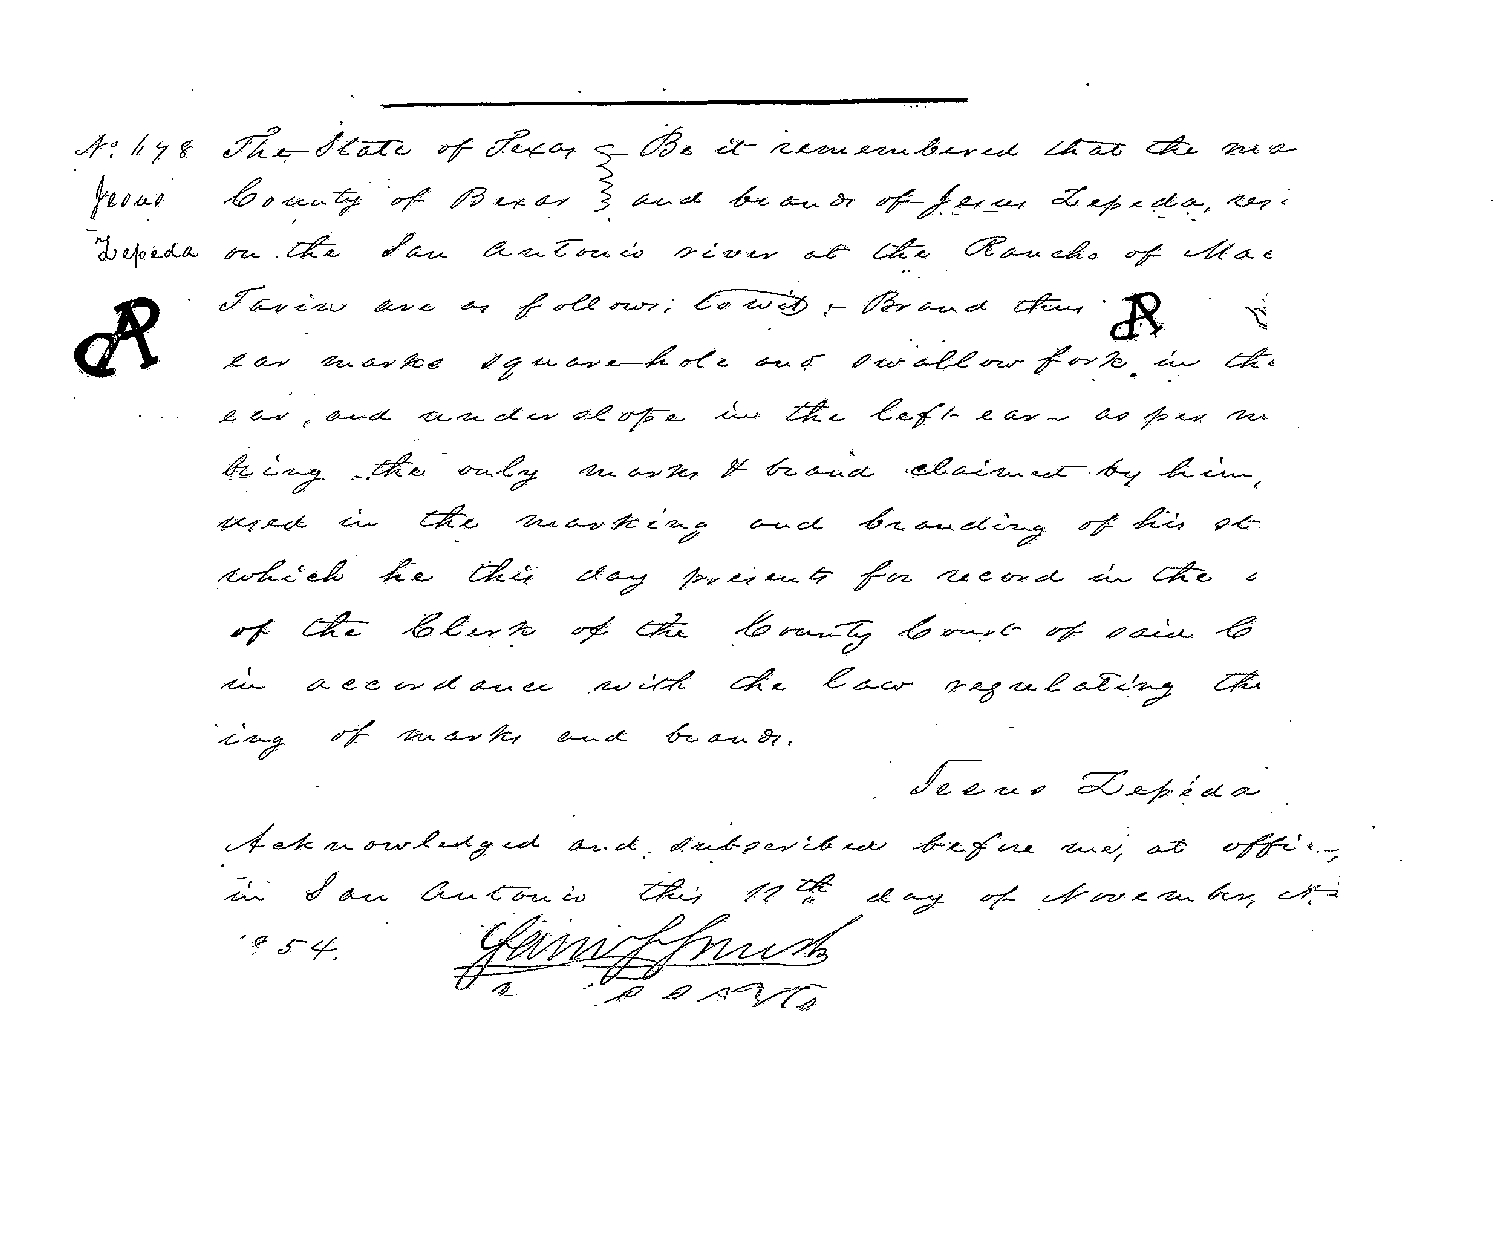 No. 678 The State of Texas } Be it remembered that the ma
Jesus County of Bexar } and brands of Jesus Zepeda, resi
Zepeda on the San Antonio river at the Rancho of Mac
Tarin are as follows; to wit; Brand thus
ear marks square hole and swallow fork in the
ear, and under slope in the left ear as per m
being the only marks & brand claimed by him,
used in the marking and branding of his st
which he this day presents for record in the o
of the Clerk of the County Court of said C
in accordance with the law regulating the
ing of marks and brands.
Jesus Zepeda
Acknowledged and subscribed before me, at office
in San Antonio this 17th day of November, A.D
1854.